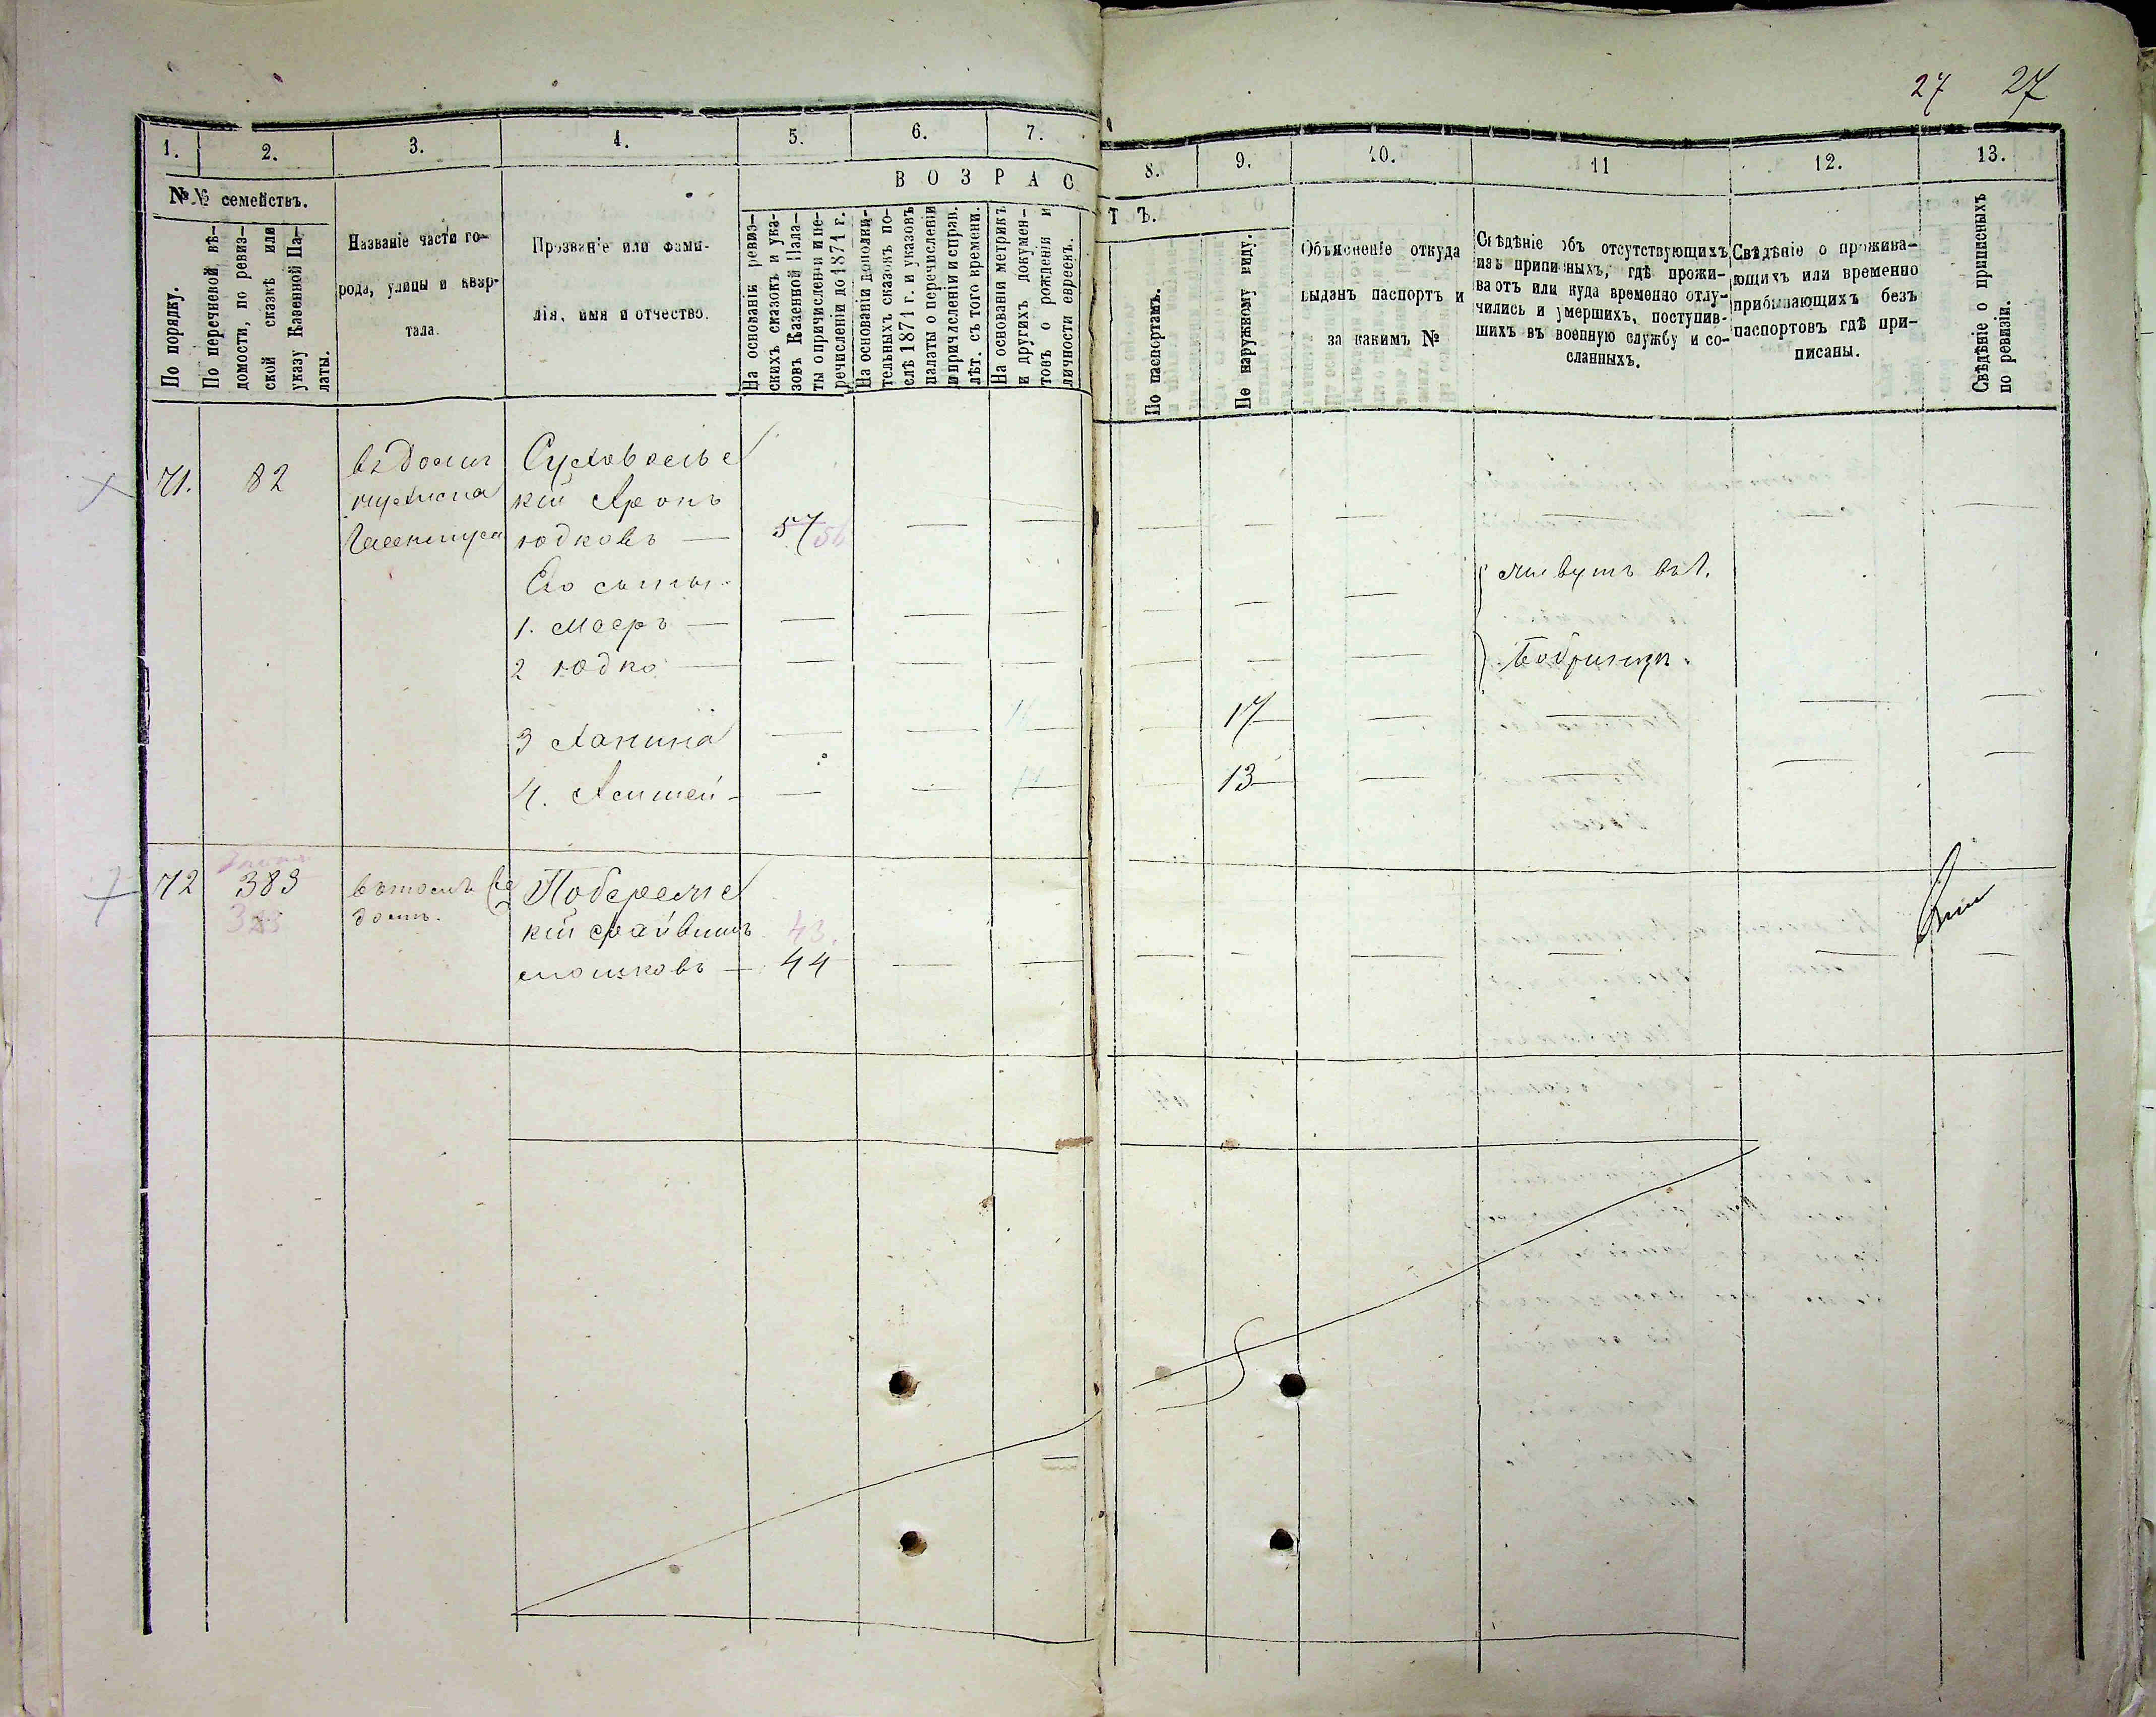 27 27
1. 2. 3. 4. 5. 6. 7. 8. 9. 10. 11 12. 13.
№№ семействъ.
По порядку.
По перечневой вѣ-
домости, по ревиз-
ской сказкѣ или
указу Казенной Па-
латы.
Названіе части го-
рода, улицы и квар-
тала.
Прозваніе или фами-
лія, имя и отчество.
ВОЗРАСТЪ.
На основаніи ревиз-
скихъ сказокъ и ука-
зовъ Казенной Пала-
ты о причисленіи и пе-
речисленіи до 1871 г.
На основаніи дополни-
тельныхъ сказокъ по-
слѣ 1871 г. и указовъ
палаты о перечисленіи
и причисленіи и справ.
лѣт. съ того времени.
На основаніи метрикъ
и другихъ докумен-
товъ о рожденіи и
личности евреекъ.
По паспортамъ.
По наружному виду.
Объясненіе откуда
выданъ паспортъ и
за какимъ №
Свѣдѣніе объ отсутствующихъ
изъ приписныхъ, гдѣ прожи-
ваютъ или куда временно отлу-
чились и умершихъ, поступив-
шихъ въ военную службу и со-
сланныхъ.
Свѣдѣніе о прожива-
ющихъ или временно
прибывающихъ безъ
паспортовъ гдѣ при-
писаны.
Свѣдѣніе о приписныхъ
по ревизіи.
71. 82 въ Домѣ Суховольс
кій Аронъ
Юдковъ — 57 56 — — — — — — — —
Его сыны
живутъ въ г.
1. Мееръ — — — — — — —
2 Юдко — — — — — — —
Бобринцѣ.
3 Ханина — — — — 17 — — — —
4. — — — — 13 — — — —
72 383 въ томъ же Побережс
383 домѣ. кій 43.
Мошковъ — 44 — — — — — — — —